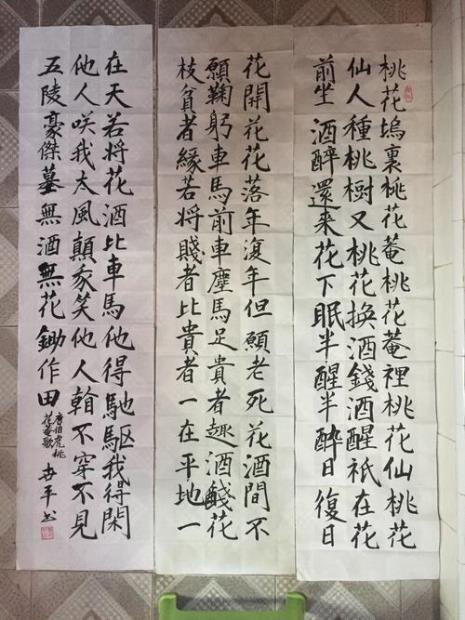 桃花塢裏桃花菴桃花菴裡桃花仙桃花
仙人種桃樹又桃花換酒錢酒醒祇在花
前坐酒醉還来花下眠半醒半醉日復日
花開花花落年復年但願老死花酒間不
願鞠躬車馬前車塵馬足貴者趣酒醆花
枝貧者緣若将賤者比貴者一在平地一
在天若将花酒比車馬他得馳駆我得閑
他人咲我太風顛我笑他人翰不穿不見
五陵豪傑墓無酒無花鋤作田
唐伯虎桃
花菴歌